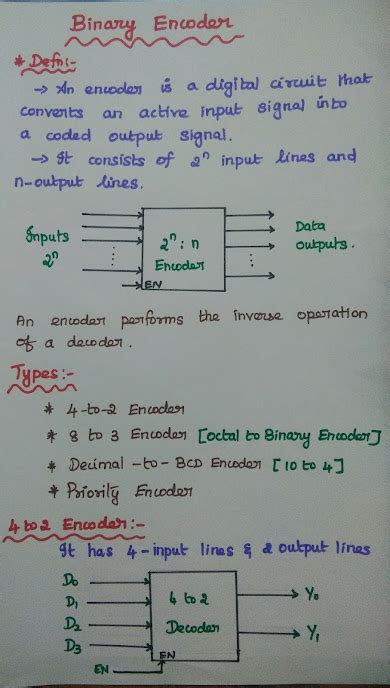 Binary Encoder
* Defn:-
→ An encoder is a digital circuit that
converts an active input signal into
a coded output signal.
→ It consists of 2ⁿ input lines and
n-output lines.
Inputs
2ⁿ
2ⁿ : n
Encoder
EN
Data
outputs.
An encoder performs the inverse operation
of a decoder.
Types:-
* 4-to-2 Encoder
* 8 to 3 Encoder [octal to Binary Encoder]
* Decimal -to- BCD Encoder [10 to 4]
* Priority Encoder
4 to 2 Encoder:-
It has 4-input lines & 2 output lines
D₀
D₁
D₂
D₃
EN
4 to 2
Decoder
EN
Y₀
Y₁